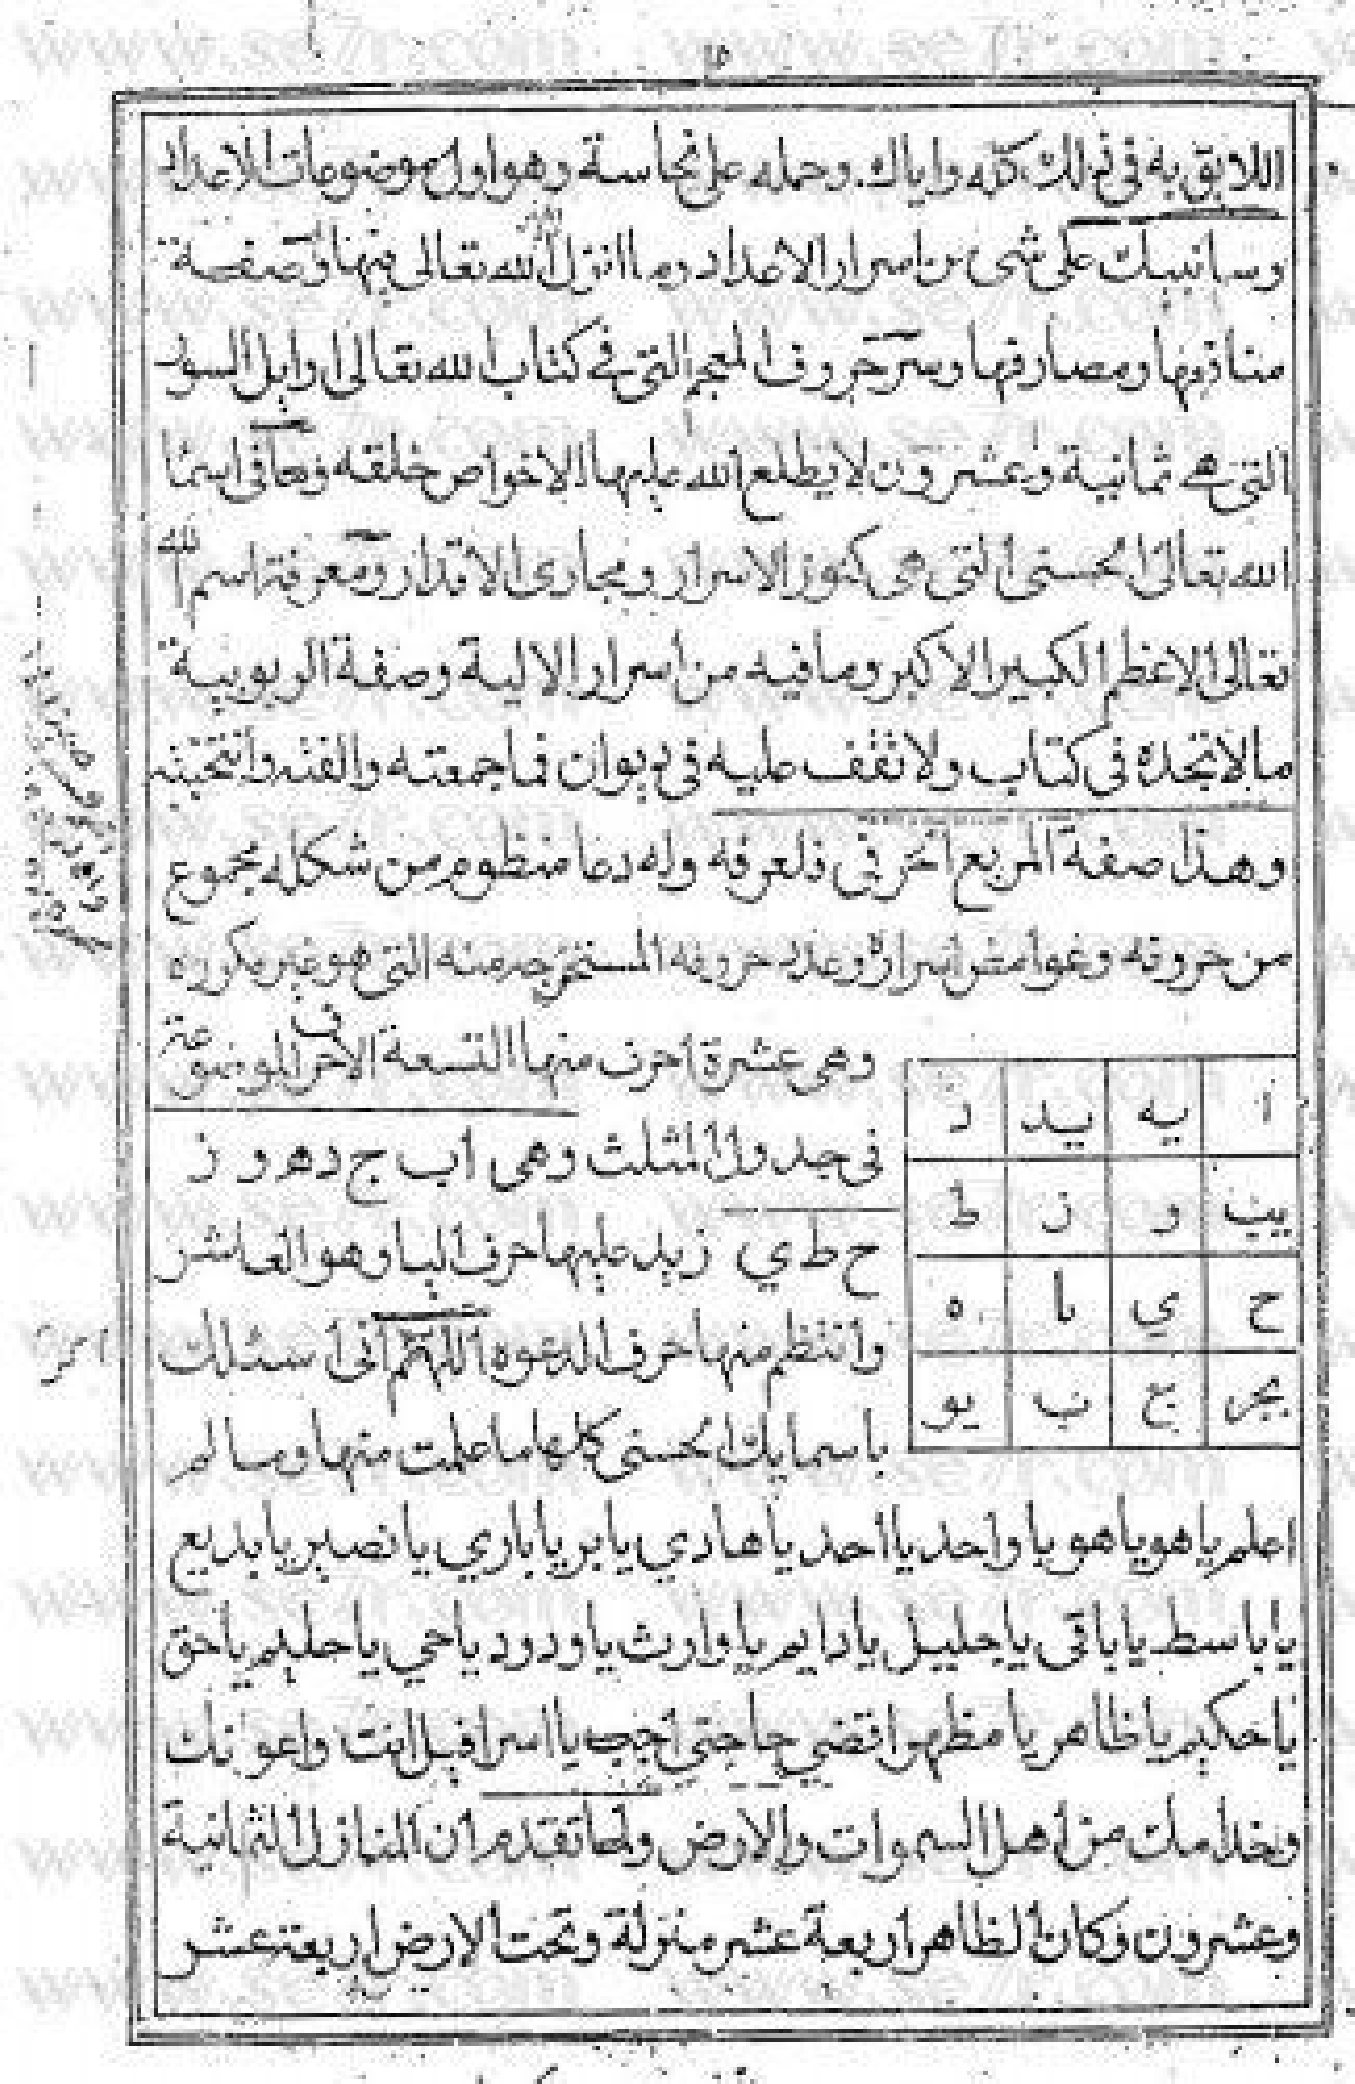 اللايق به في ذلك كله واياك وحمله على نجاسة وهو اول موضوعات الاعداد
وسانبيك على شي من اسرار الاعداد وما انزل الله تعالى فيها وصفة
منازمها ومصارفها وسر حروف المعجم التي في كتاب الله تعالى اوايل السور
التي هي ثمانية وعشرون لا يطلع الله عليها الا خواص خلقه وما في اسما
الله تعالى الحسنى التي هي كنوز الاسرار ومجاري الاقدار ومعرفة اسم الله
تعالى الاعظم الكبير الاكبر وما فيه من اسرار الالية وصفة الربوبية
مالاتجده في كتاب ولا تقف عليه في ديوان فما جمعته والفته وانتخبته
وهذا صفة المربع الحرفي فلعرفه وله دعا منظوم من شكله مجموع
من حروفه وغوامض اسراره وعدد حروفه المستخرجه منه التي هو غير مكرره
وهي عشرة احرف منها التسعة الاحرف الموضوعة
في جدول المثلث وهي ا ب ج د ه و ز
ح ط ي زيد عليها حرف اليا وهو العاشر
وانتظم منها حرف الدعوه اللهم اني اسئلك
باسمايك الحسنى كلها ما علمت منها وما لم
ا يه يد د
يب و ز ط
ح ي يا ه
يج ج ب يو
اعلم ياهو ياهو يا واحد يا احد يا هادي يا بر يا باري يا نصير يا بديع
يا باسط يا باقي يا جليل يا دايم يا وارث يا ودود يا حي يا حليم يا حق
يا حكيم يا ظاهر يا مظهر اقضي حاجتي اجب يا اسرافيل انت واعوانك
وخدامك من اهل السموات والارض ولما تقدم ان المنازل الثمانية
وعشرون وكان الظاهر اربعة عشر منزلة وتحت الارض اربعة عشر
www.se7r.com